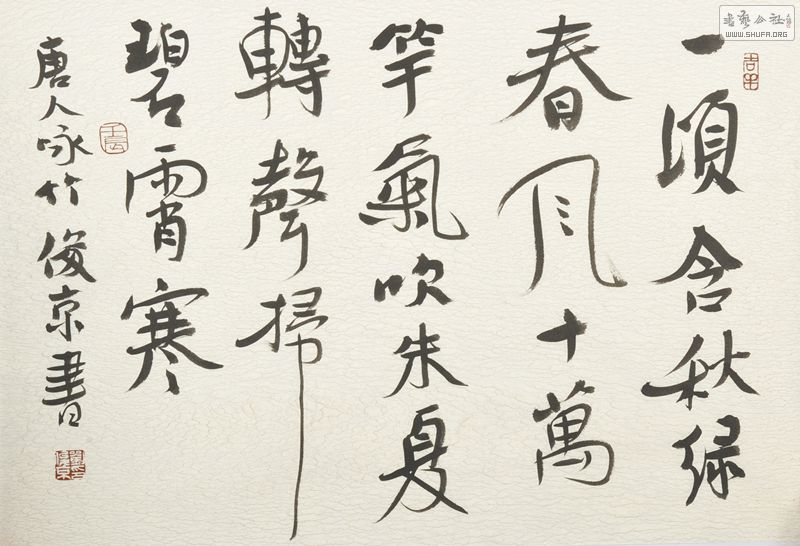 一頃含秋緑
春風十萬
竿氣吹朱夏
轉聲掃
碧霄寒
唐人咏竹俊京書
壬辰
書藝公社
WWW.SHUFA.ORG